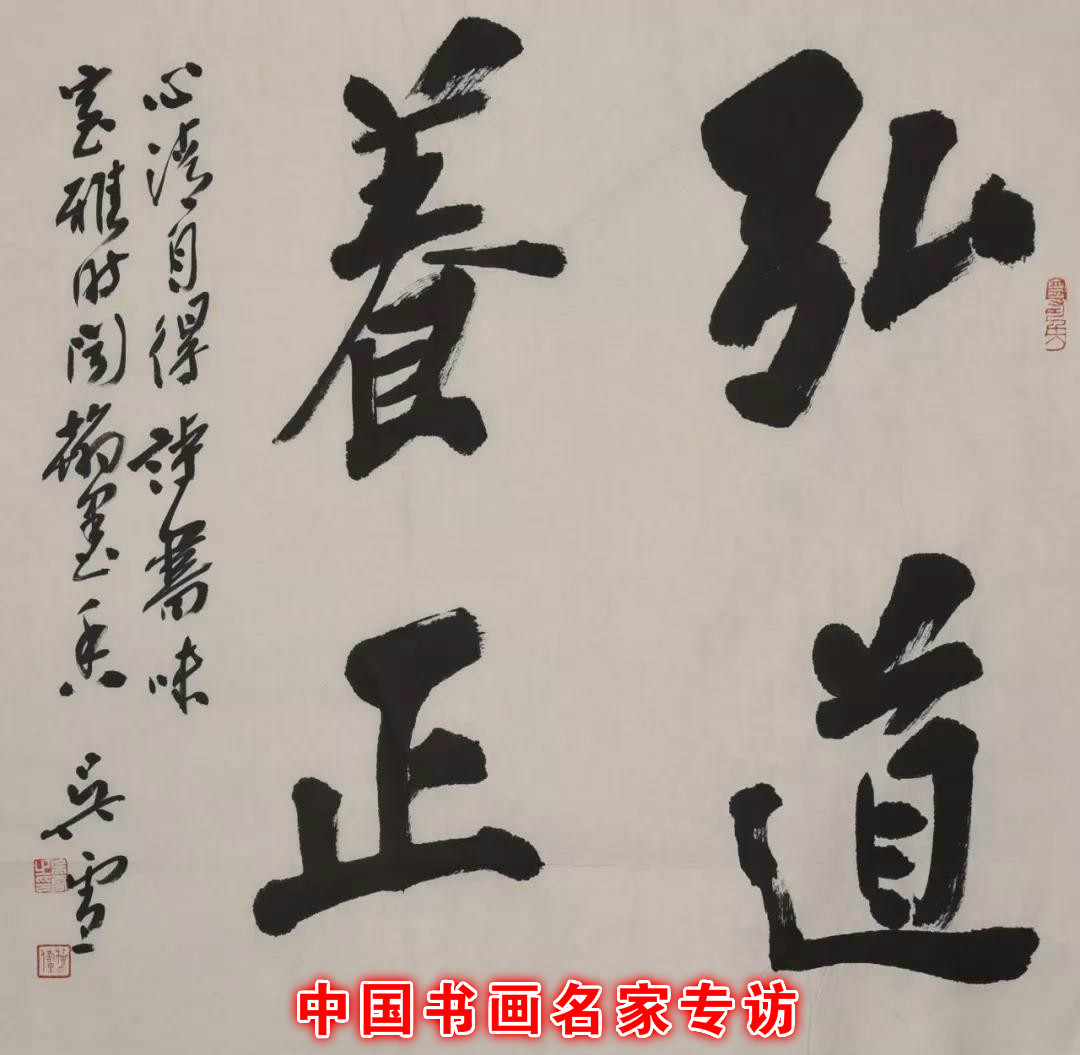 弘道
養正
心清自得詩書味
室雅时闻翰墨香
吴雪
中国书画名家专访